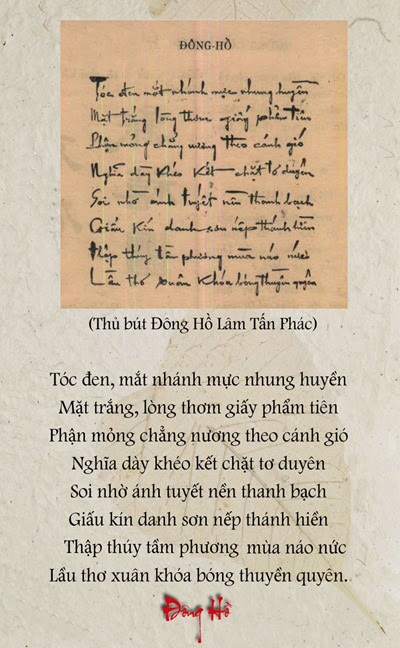 ĐÔNG-HỒ
Tóc đen mắt nhánh mực nhung huyền
Mặt trắng lòng thơm giấy phẩm tiên
Phận mỏng chẳng nương theo cánh gió
Nghĩa dày khéo kết chặt tơ duyên
Soi nhờ ánh tuyết nền thanh bạch
Giấu kín danh sơn nếp thánh hiền
Thập thúy tầm phương mùa náo nức
Lầu thơ xuân khóa bóng thuyền quyên
(Thủ bút Đông Hồ Lâm Tấn Phác)
Tóc đen, mắt nhánh mực nhung huyền
Mặt trắng, lòng thơm giấy phẩm tiên
Phận mỏng chẳng nương theo cánh gió
Nghĩa dày khéo kết chặt tơ duyên
Soi nhờ ánh tuyết nền thanh bạch
Giấu kín danh sơn nếp thánh hiền
Thập thúy tầm phương mùa náo nức
Lầu thơ xuân khóa bóng thuyền quyên.
Đông Hồ